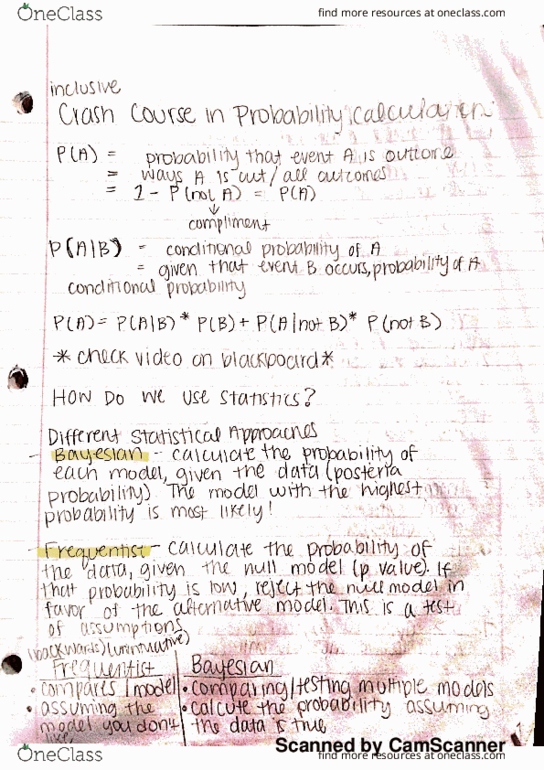 OneClass
find more resources at oneclass.com
inclusive
Crash Course in Probability Calculation
P(A) = probability that event A is outcome
= ways A is out / all outcomes
= 1 - P(not A) = P(A)
↓
compliment
P(A|B) = conditional probability of A
= given that event B occurs, probability of A
conditional probability
P(A) = P(A|B) * P(B) + P(A|not B) * P(not B)
* check video on blackboard *
HOW DO WE USE STATISTICS?
Different Statistical Approaches
- Bayesian - calculate the probability of
each model, given the data (posteria
probability). The model with the highest
probability is most likely!
- Frequentist - calculate the probability of
the data, given the null model (p value). If
that probability is low, reject the null model in
favor of the alternative model. This is a test
of assumptions
(backwards/unintuitive)
Frequentist
• compares 1 model
• assuming the
model you don't
like
Bayesian
• comparing/testing multiple models
• calcute the probability assuming
the data is true
Scanned by CamScanner
OneClass
find more resources at oneclass.com